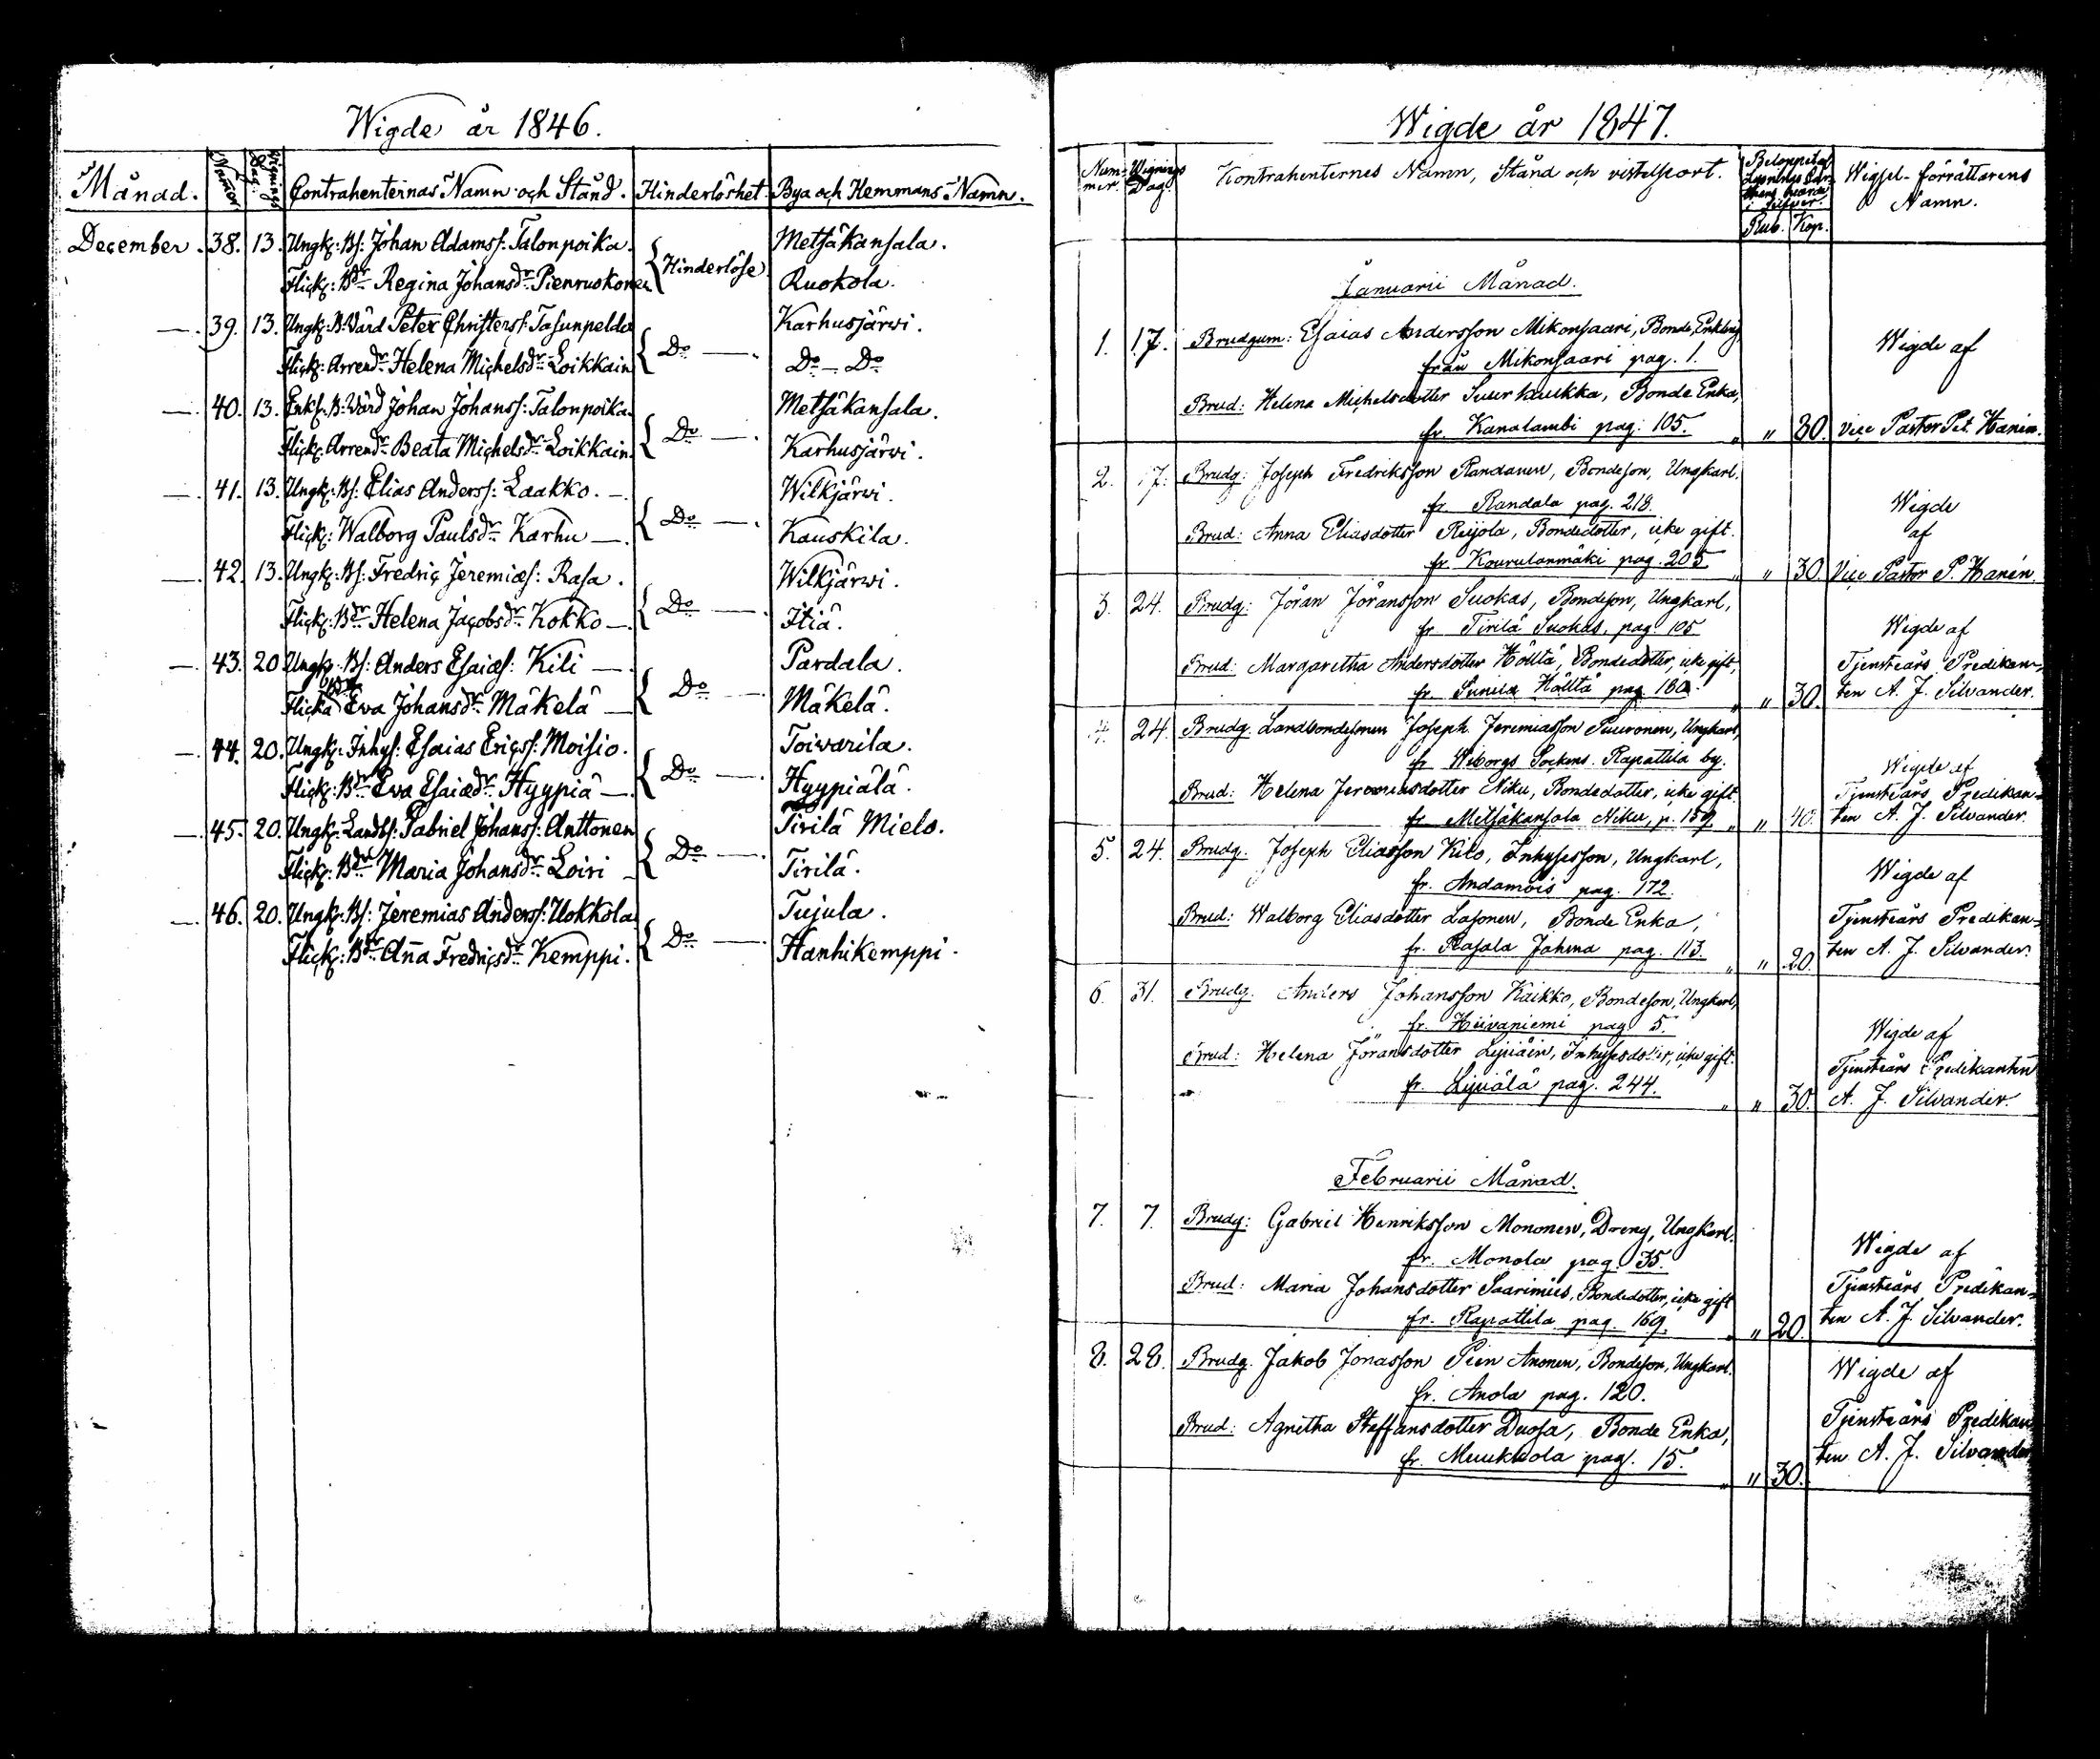 Wigde år 1846.
Månad. Numror Vignings Dag. Contrahenternas Namn och Stånd. Hinderlöshet. Bya och Hemmans Namn.
December. 38. 13. Ungk: Bs: Johan Adamss: Talonpoika. Hinderlöse Metsäkansala.
Flick: Bdr Regina Johansdr Pienruokonen Ruokola.
— 39. 13. Ungk: B: Värd Peter Christerss: Tasunpelda Do —. Karhusjärvi.
Flick: Arrendr Helena Michelsdr Loikkain Do — Do
— 40. 13. Enkl: B: Värd Johan Johanss: Talonpoika. Do —. Metsäkansala.
Flick: Arrendr Beata Michelsdr Loikkain. Karhusjärvi.
— 41. 13. Ungk: Bs: Elias Anderss: Laakko. — Do —. Wilkjärvi.
Flick: Walborg Paulsdr Karhu —. Kauskila.
— 42. 13. Ungk: Bs: Fredric Jeremiæs: Rasa. Do —. Wilkjärvi.
Flick: Bdr Helena Jacobsdr Kokko —. Itiä.
— 43. 20 Ungk: Bs: Anders Esaiæs: Kili —. Do —. Pardala.
Flicka Bdr Eva Johansdr Mäkelä — Mäkelä.
— 44. 20. Ungk: Inhys: Esaias Ericss: Moisio. Do —. Toivarila.
Flick: Bdr Eva Esaiædr Hyypiä —. Hyypiälä.
— 45. 20. Ungk: Landbs: Gabriel Johanss: Anttonen Do —. Tirilä Mielo.
Flick: Bdr Maria Johansdr Loiri — Tirilä.
— 46. 20. Ungk: Bs: Jeremias Anderss: Uokkola Do —. Tujula.
Flick: Bdr Ana Fredricsdr Kemppi. Hanhikemppi.
Wigde år 1847.
Nummer. Wignings Dag. Kontrahenternes Namn, Stånd och vistelseort. Beloppet af i Silfver. Rub. Kop. Wigsel-förrättarens Namn.
Januarii Månad.
1. 17. Brudgum: Esaias Andersson Mikonsaari, Bonde, Enkling
från Mikonsaari pag. 1. Wigde af
Brud: Helena Michelsdotter Suurhaukka, Bonde Enka,
fr. Kanalambi pag. 105. " " 30. vice Pastor Pet. Hanén.
2. 17. Brudg: Joseph Fredriksson Randanen, Bondeson, Ungkarl.
fr. Randala pag. 218. Wigde
Brud: Anna Eliasdotter Reijola, Bondedotter, icke gift. af
fr. Kourulanmäki pag. 205 " " 30. Vice Pastor P. Hanén.
3. 24. Brudg: Jöran Jöransson Suokas, Bondeson, Ungkarl,
fr. Tirilä Suokas, pag. 105 Wigde af
Brud: Margaretha Andersdotter Hölltä, Bondedotter, icke gift, Tjensteårs Predikan-
fr. Sunila Hölltä pag 180. " " 30. ten A. J. Silvander.
4. 24. Brudg. Landbondesonen Joseph Jeremiasson Puuronen, Ungkarl,
fr. Wiborgs Sockens. Rapattila by. Wigde af
Brud: Helena Jeremiasdotter Niku, Bondedotter, icke gift. Tjensteårs Predikan-
fr. Metsäkansola Niku, p. 159. " " 40. ten A. J. Silvander.
5. 24. Brudg. Joseph Eliasson Kilo, Inhysesson, Ungkarl, Wigde af
fr. Andamois pag. 172.
Brud: Walborg Eliasdotter Lasonen, Bonde Enka, Tjensteårs Predikan-
fr. Rasala Jahma pag. 113. " " 20. ten A. J. Silvander.
6. 31. Brudg. Anders Johansson Kaikko, Bondeson, Ungkarl,
fr. Hiivaniemi pag 5. Wigde af
Brud: Helena Jöransdotter Lyijäin, Inhysesdotter, icke gift. Tjensteårs Predikanten
fr. Lyijälä pag. 244. " " 30. A. J. Silvander.
Februarii Månad.
7. 7. Brudg: Gabriel Henriksson Mononen, Dreng, Ungkarl.
fr. Monola pag 35. Wigde af
Brud: Maria Johansdotter Saarimies, Bondedotter, icke gift Tjensteårs Predikan-
fr. Rapattila pag. 169. " " 20 ten A. J. Silvander.
8. 28. Brudg. Jakob Jonasson Pien Anonen, Bondeson, Ungkarl. Wigde af
fr. Anola pag. 120.
Brud: Agnetha Staffansdotter Duosa, Bonde Enka, Tjensteårs Predikan
fr. Muukkola pag. 15. " " 30. ten A. J. Silvander